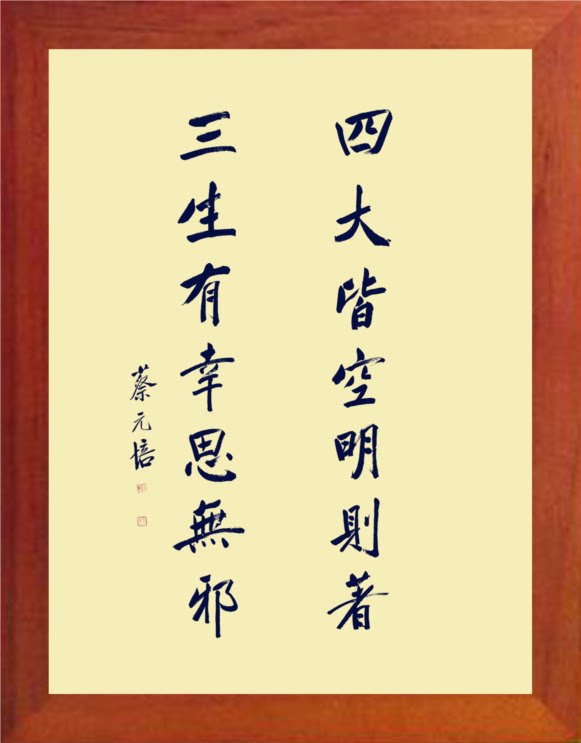 四大皆空明則著
三生有幸思無邪
蔡元培